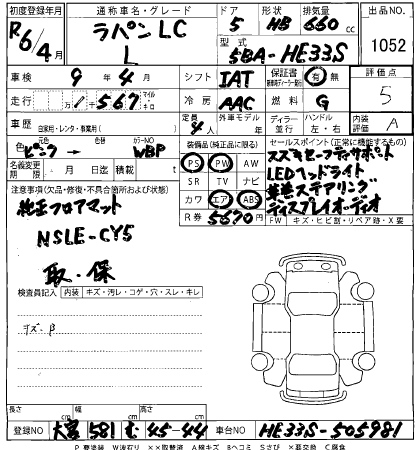 初度登録年月 通称車名・グレード ドア 形状 排気量 出品NO
R6/4月 ラパンLC L 5 HB 660cc 1052
型式 5BA-HE33S
車検 9年4月 シフト IAT 保証書 有 無 評価点 5
走行 万 1千567 マイル キロ 冷房 AAC 燃料 G
車歴 自家用・レンタ・事業用( ) 定員 4人 外車モデル 年 ディーラー 並行 ハンドル 左・右 内装評価 A
色 元色 ピンク → 色替 カラーNO WBP 装備品(純正品に限る) セールスポイント(正常に機能するもの)
名義変更期限 月 日 積載 t PS PW AW スズキセーフティサポート
注意事項(欠品・修復・不具合箇所および状態) SR TV ナビ LEDヘッドライト
純正フロアマット カワ エア ABS 革巻ステアリング
NSLE-CY5 R券 5670円 ディスプレイオーディオ
取・保 FW キズ・ヒビ割・リペア跡・X要
検査員記入 内装 キズ・汚レ・コゲ・穴・スレ・キレ
長さ cm 幅 cm 高さ cm
登録NO 大宮 581 む 45-44 車台NO HE33S-505981
P 要塗装 W波有り ××取替済 A線キズ Bヘコミ Sさび ×要交換 C腐食